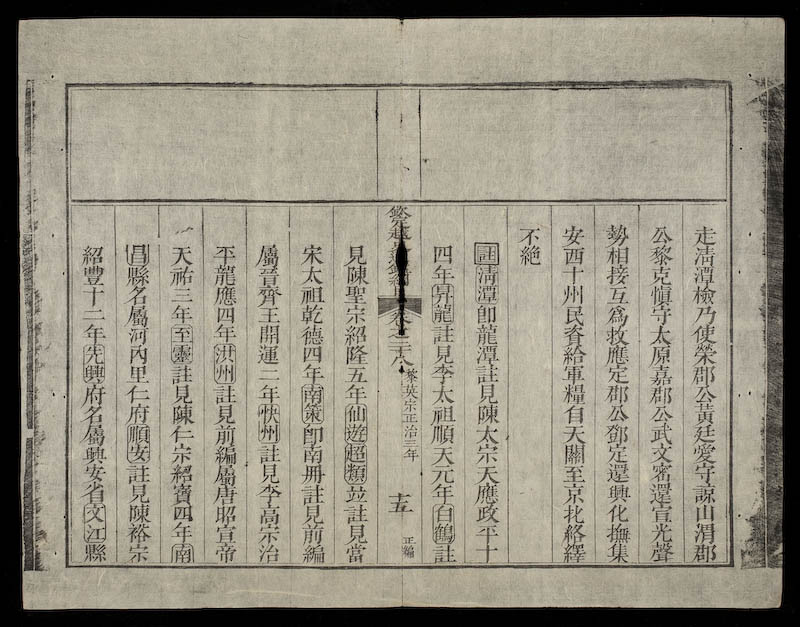 走淸潭檢乃使榮郡公黃廷愛守諒山渭郡
公黎克愼守太原嘉郡公武文密還宣光聲
勢相接互爲救應定郡公鄧定還興化撫集
安西十州民資給軍糧自天關至京北絡繹
不絶
註淸潭卽龍潭註見陳太宗天應政平十
四年昇龍註見李太祖順天元年白鶴註
黎英宗正治三年
十五
正編
見陳聖宗紹隆五年仙遊超類竝註見當
宋太祖乾德四年南策卽南册註見前編
屬晉齊王開運二年快州註見李高宗治
平龍應四年洪州註見前編屬唐昭宣帝
天祐三年至靈註見陳仁宗紹寶四年南
昌縣名屬河內里仁府順安註見陳裕宗
紹豐十二年先興府名屬興安省文江縣